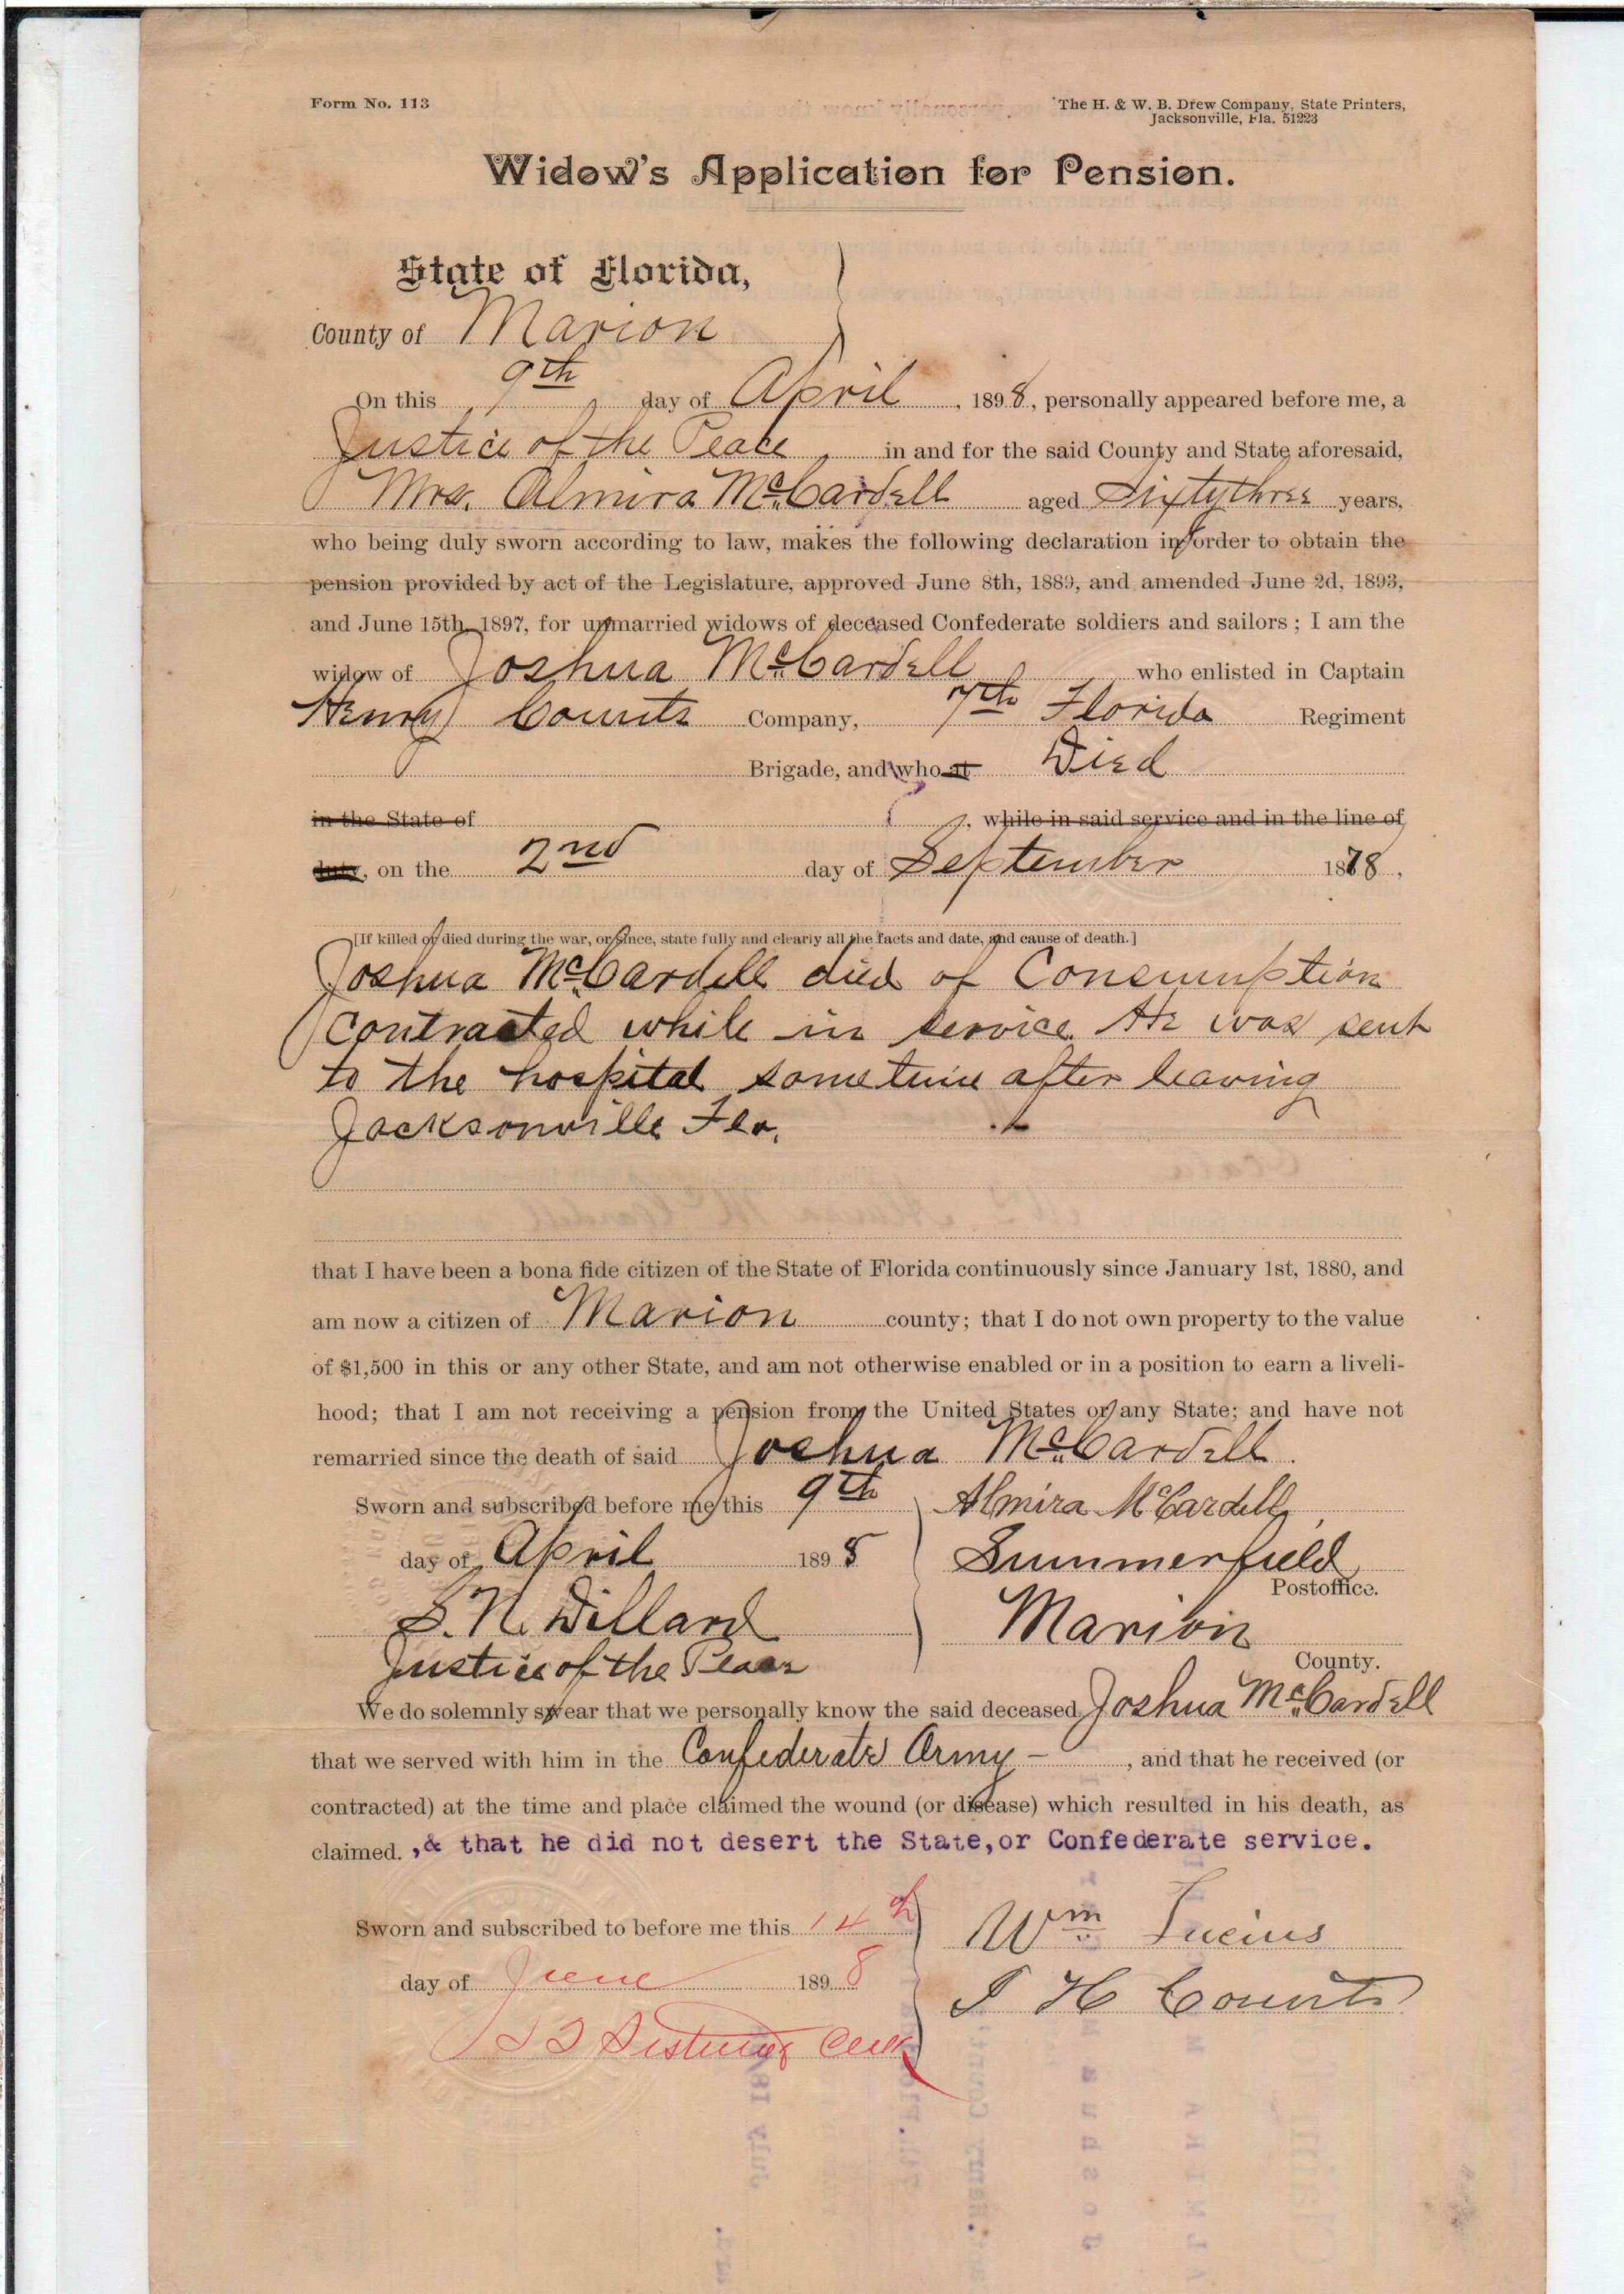 Form No. 113
The H. & W. B. Drew Company, State Printers,
Jacksonville, Fla. 51223
Widow's Application for Pension.
State of Florida,
County of Marion
On this 9th day of April, 1898, personally appeared before me, a
Justice of the Peace, in and for the said County and State aforesaid,
Mrs. Almira McCardell aged Sixtythree years,
who being duly sworn according to law, makes the following declaration in order to obtain the
pension provided by act of the Legislature, approved June 8th, 1889, and amended June 2d, 1893,
and June 15th, 1897, for unmarried widows of deceased Confederate soldiers and sailors; I am the
widow of Joshua McCardell who enlisted in Captain
Henry Counts Company, 7th Florida Regiment
Brigade, and who at Died
in the State of , while in said service and in the line of
duty, on the 2nd day of September 1878,
[If killed or died during the war, or since, state fully and clearly all the facts and date, and cause of death.]
Joshua McCardell died of Consumption
Contracted while in service He was sent
to the hospital sometime after leaving
Jacksonville Fla.
that I have been a bona fide citizen of the State of Florida continuously since January 1st, 1880, and
am now a citizen of Marion county; that I do not own property to the value
of $1,500 in this or any other State, and am not otherwise enabled or in a position to earn a liveli-
hood; that I am not receiving a pension from the United States or any State; and have not
remarried since the death of said Joshua McCardell.
Sworn and subscribed before me this 9th Almira McCardell,
day of April 1898 Summerfield
Postoffice.
S. N. Dillard Marion
Justice of the Peace County.
We do solemnly swear that we personally know the said deceased Joshua McCardell
that we served with him in the Confederate Army —, and that he received (or
contracted) at the time and place claimed the wound (or disease) which resulted in his death, as
claimed. ,& that he did not desert the State, or Confederate service.
Sworn and subscribed to before me this 14th Wm Lucius
day of June 1898 J H Counts
Clerk